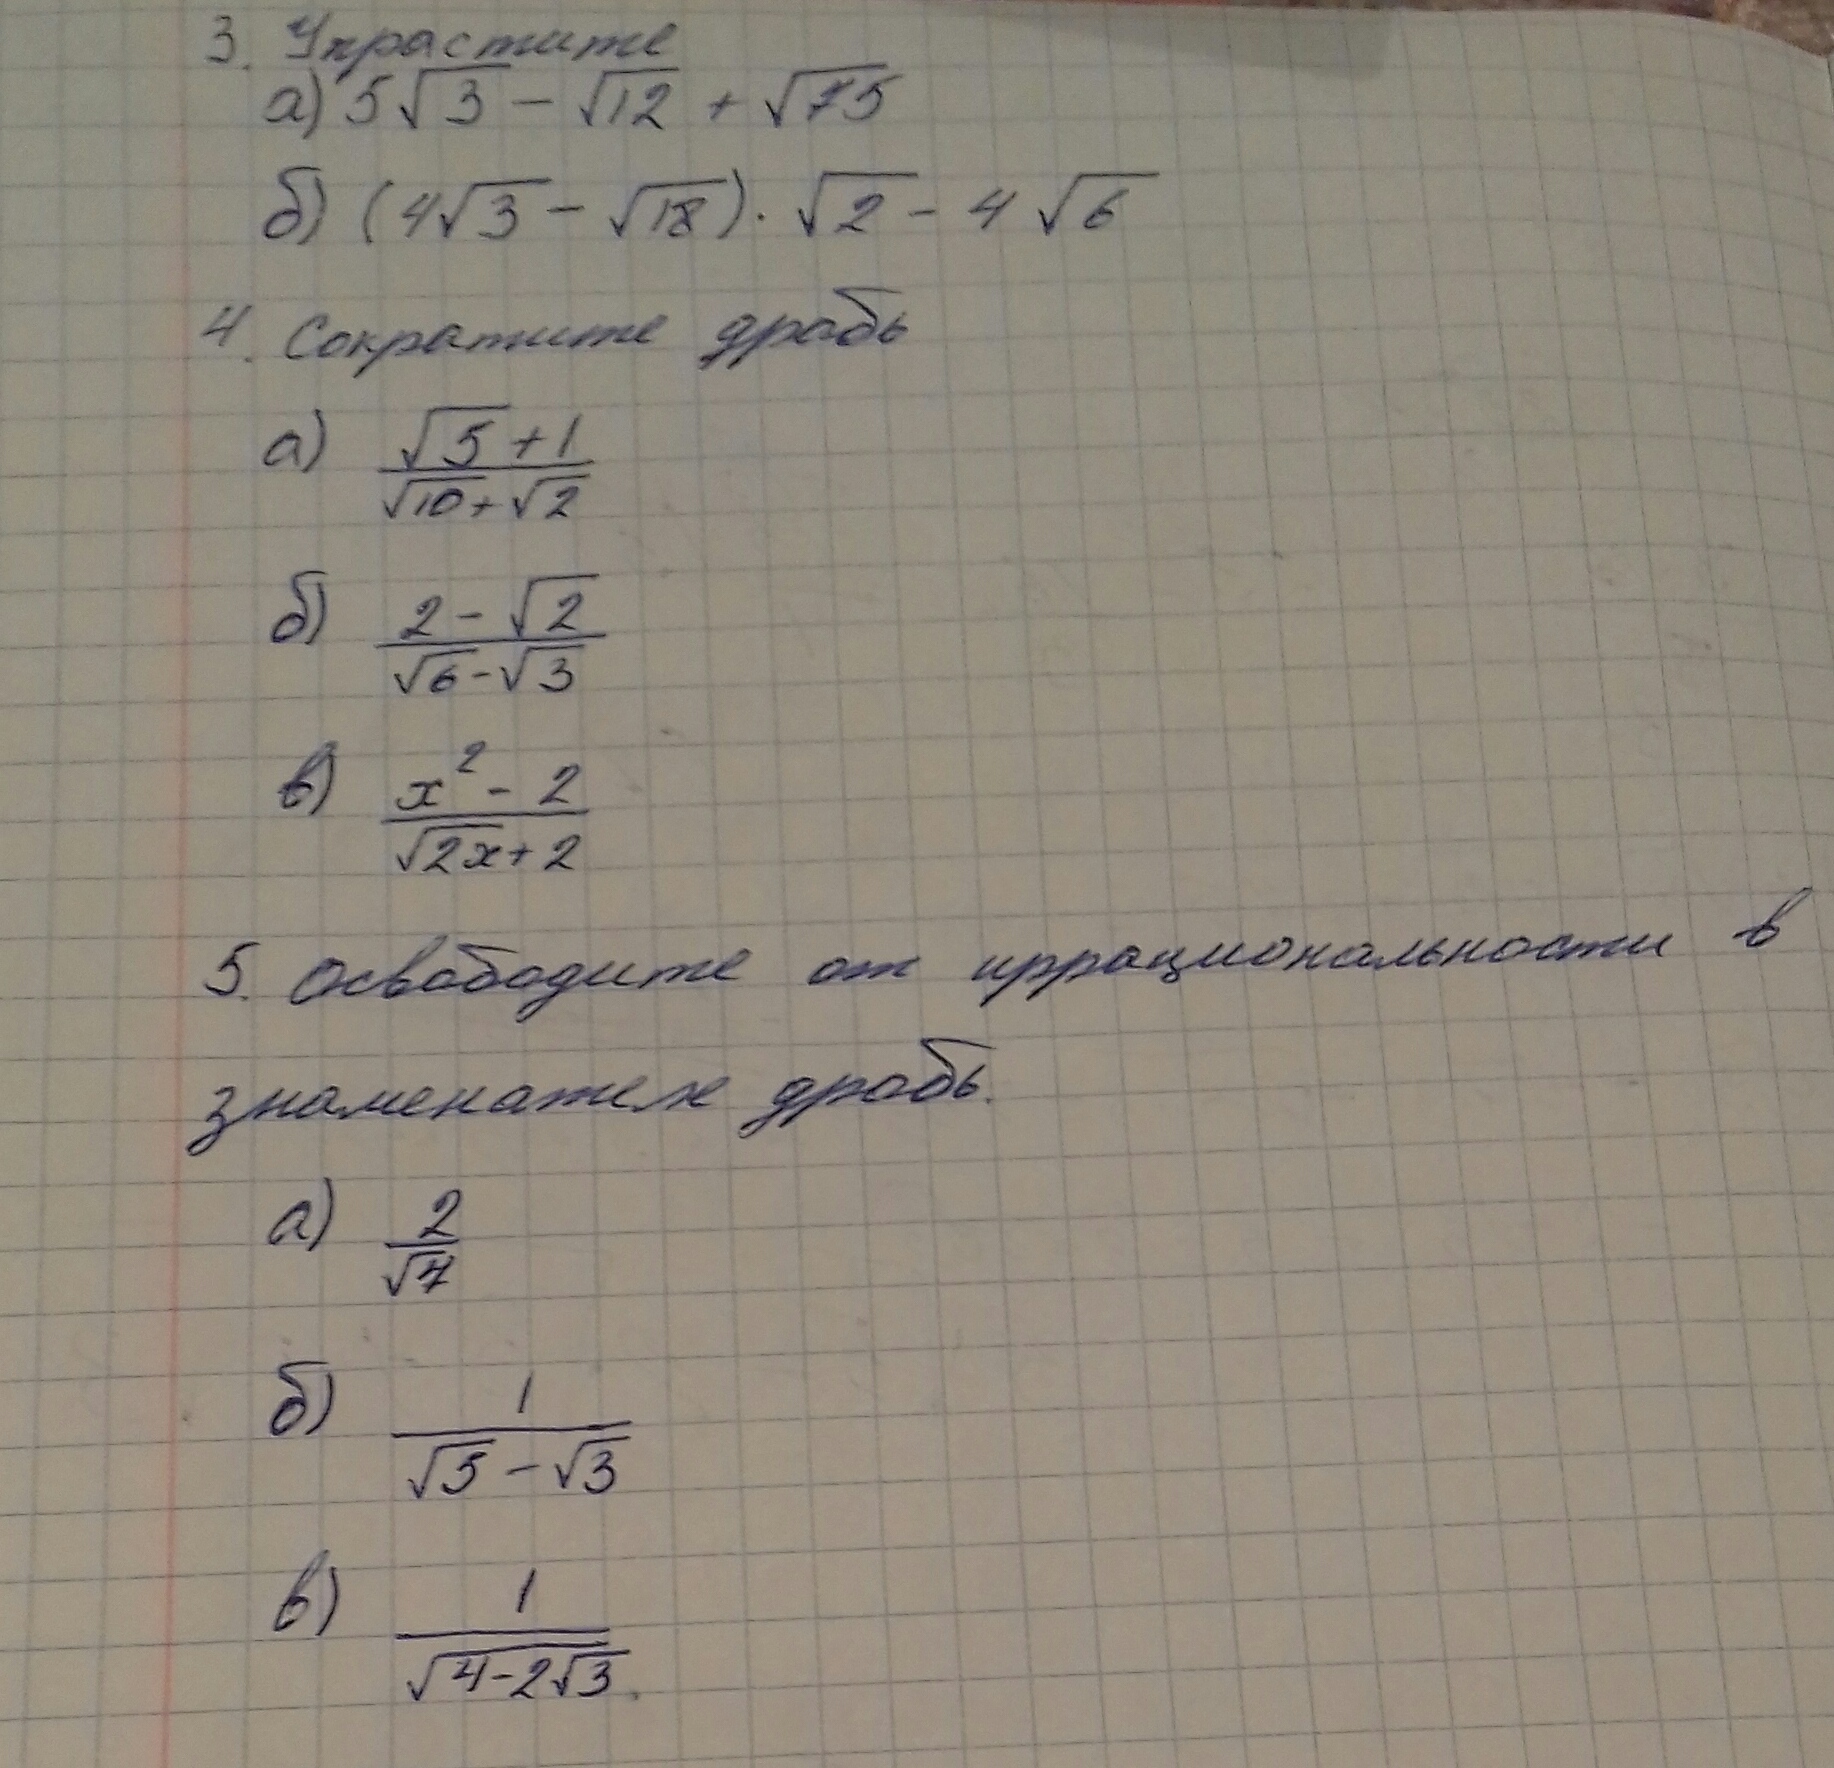 3. Упрастите
а) 5√3 - √12 + √75
б) (4√3 - √18) · √2 - 4√6
4. Сократите дробь
а) (√5 + 1)/(√10 + √2)
б) (2 - √2)/(√6 - √3)
в) (x² - 2)/(√2x + 2)
5. Освободите от иррациональности в
знаменателе дробь.
а) 2/√7
б) 1/(√5 - √3)
в) 1/√(4-2√3).